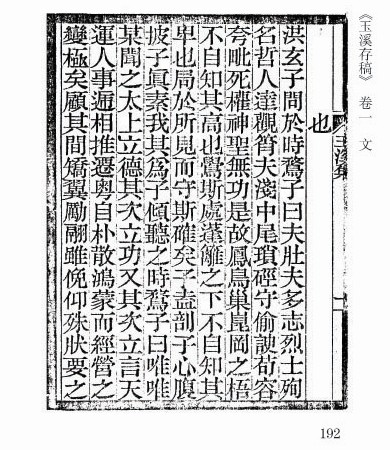 《玉溪存稿》 卷一 文
玉溪集
也
洪玄子問於時騖子曰夫壯夫多志烈士殉
名哲人達觀管夫淺中尾瑣硜守偷訣苟容
夸毗死權神聖無功是故鳳鳥巢崑岡之梧
不自知其高也鷽斯處蓬籬之下不自知其
卑也局於所見而守斯確矣子盍剖子心腹
披子眞素我其爲子傾聽之時騖子曰唯唯
某聞之太上立德其次立功又其次立言天
運人事遞相推遷粤自朴散鴻蒙而經營之
變極矣顧其間矯翼勵翮雖俛仰殊狀要之
192